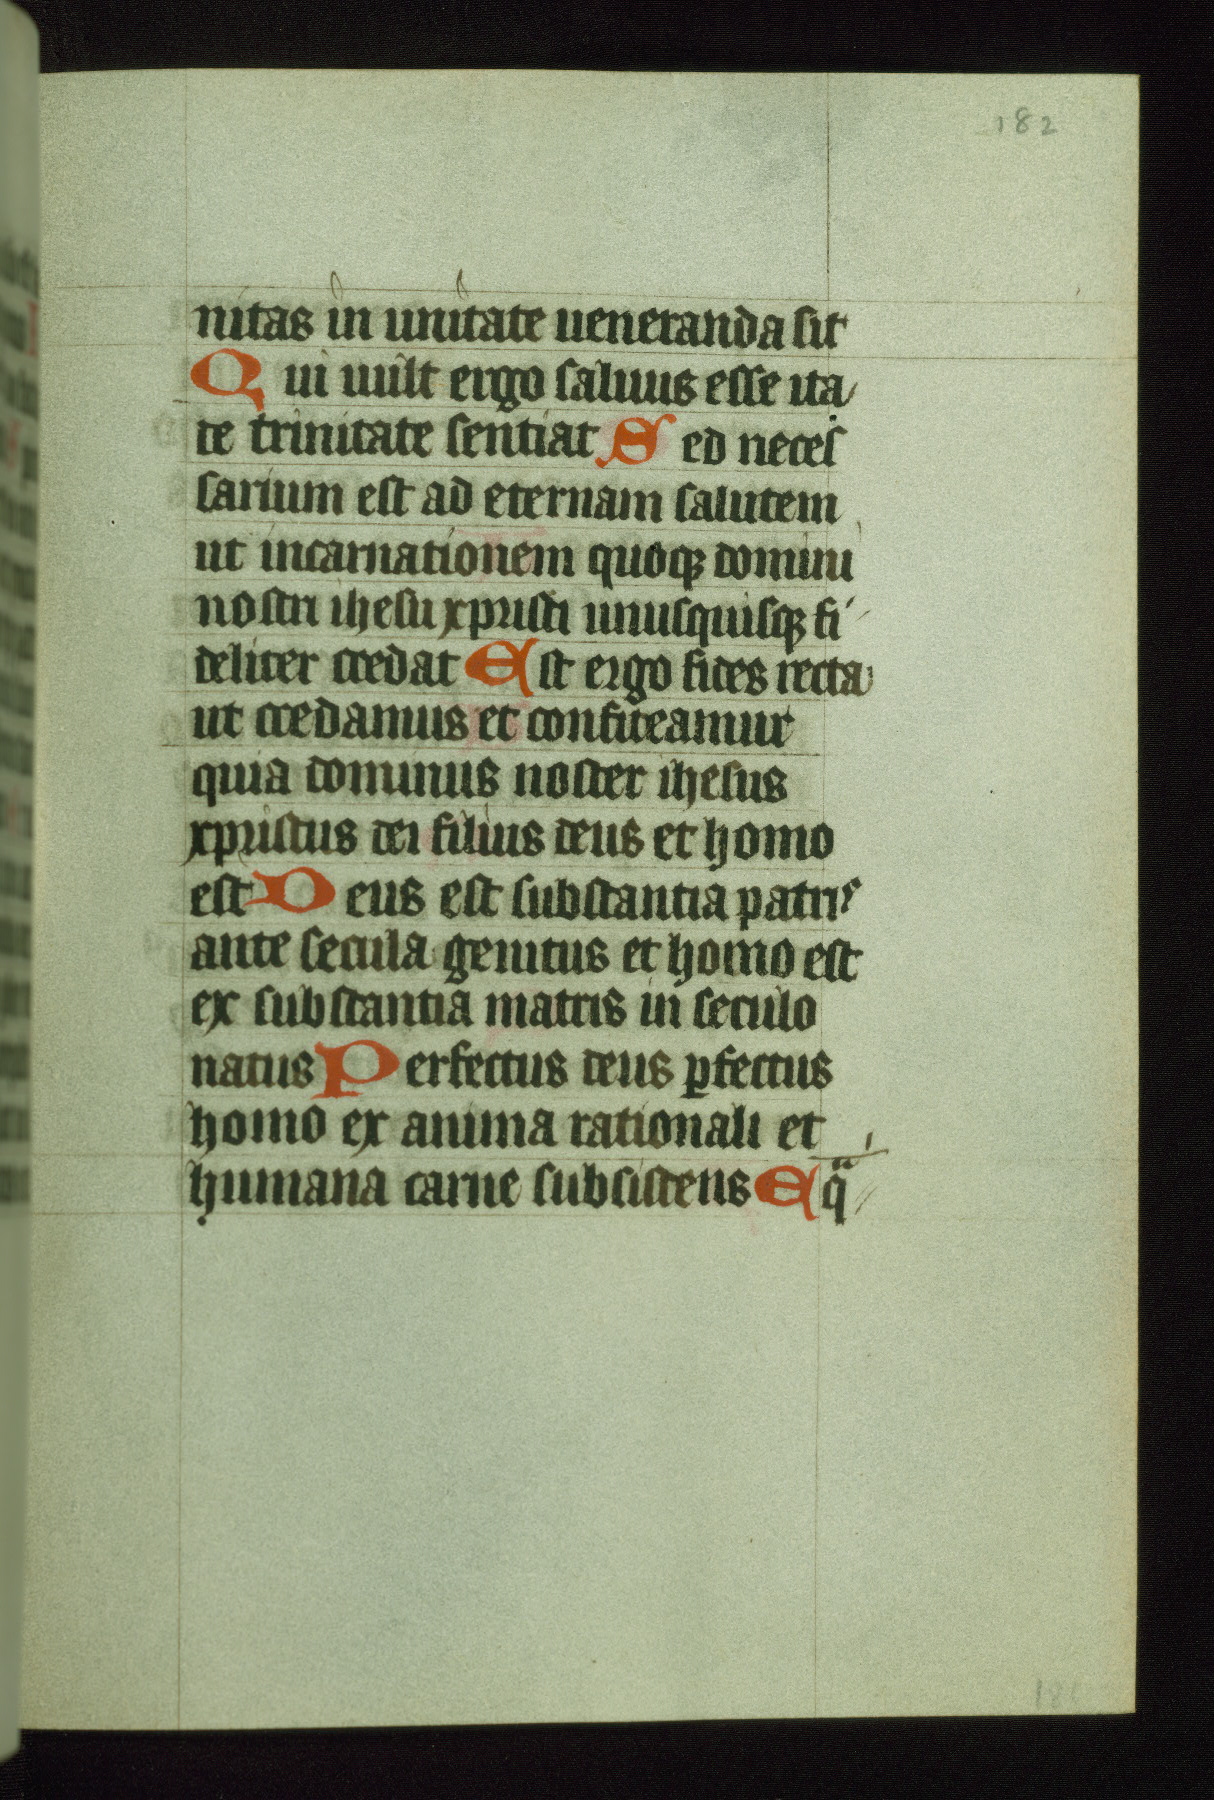 182
nitas in unitate ueneranda sit
Qui uult ergo saluus esse ita
de trinitate sentiat Sed neces
sarium est ad eternam salutem
ut incarnationem quoqꝫ domini
nostri ihesu xpristi unusquisqꝫ fi
deliter credat Est ergo fides recta
ut credamus et confiteamur
quia dominus noster ihesus
xpristus dei filius deus et homo
est Deus est substantia patris
ante secula genitus et homo est
ex substantia matris in seculo
natus Perfectus deus ꝑfectus
homo ex anima rationali et
humana carne subsistens Eq̃